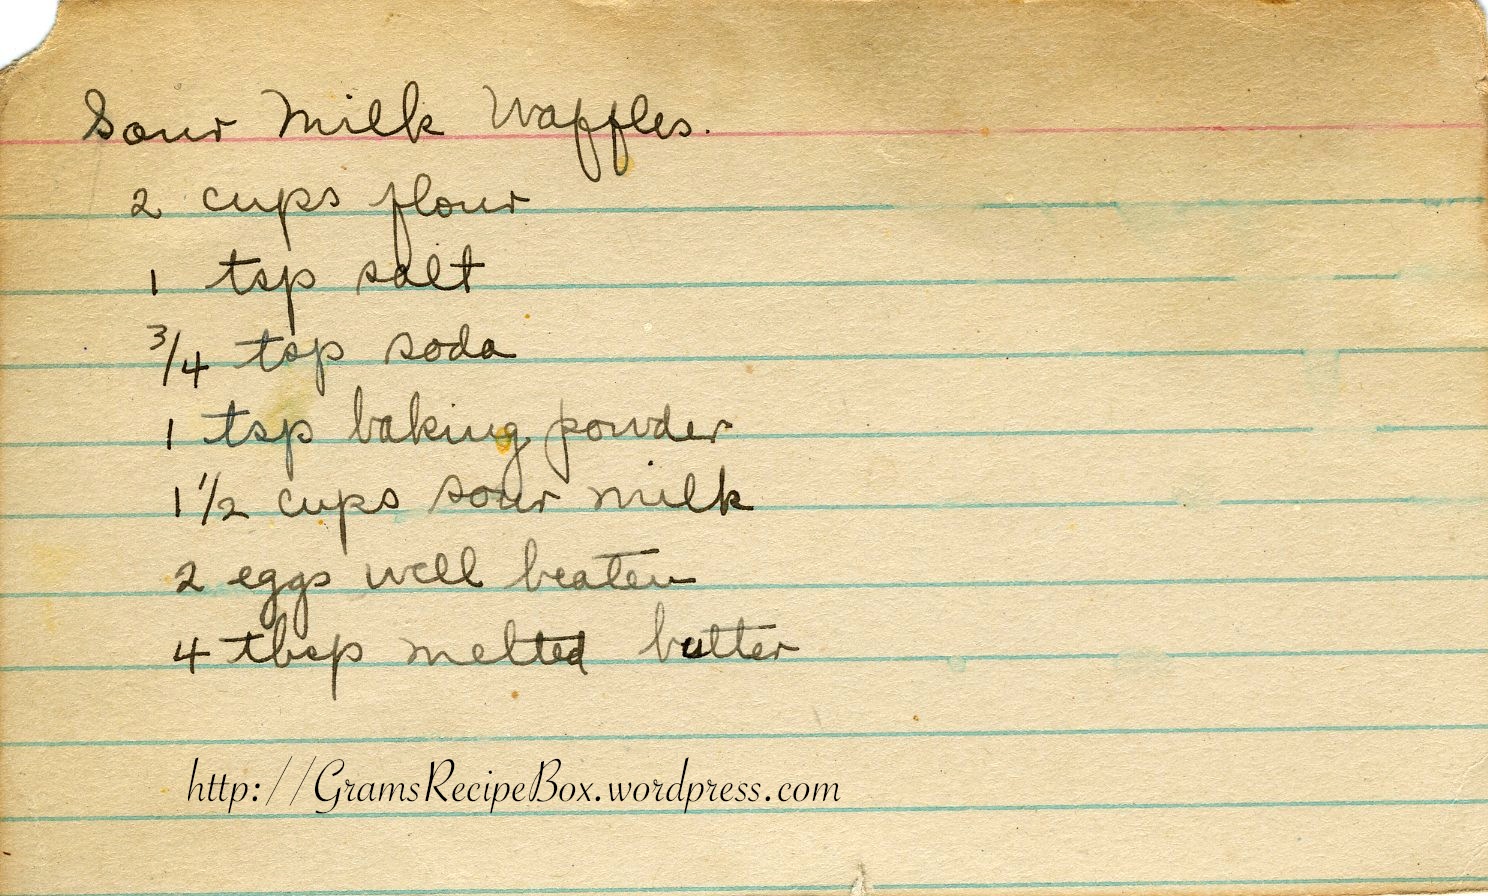 Sour Milk Waffles.
2 cups flour
1 tsp salt
3/4 tsp soda
1 tsp baking powder
1 1/2 cups sour milk
2 eggs well beaten
4 tbsp melted butter
http://GramsRecipeBox.wordpress.com